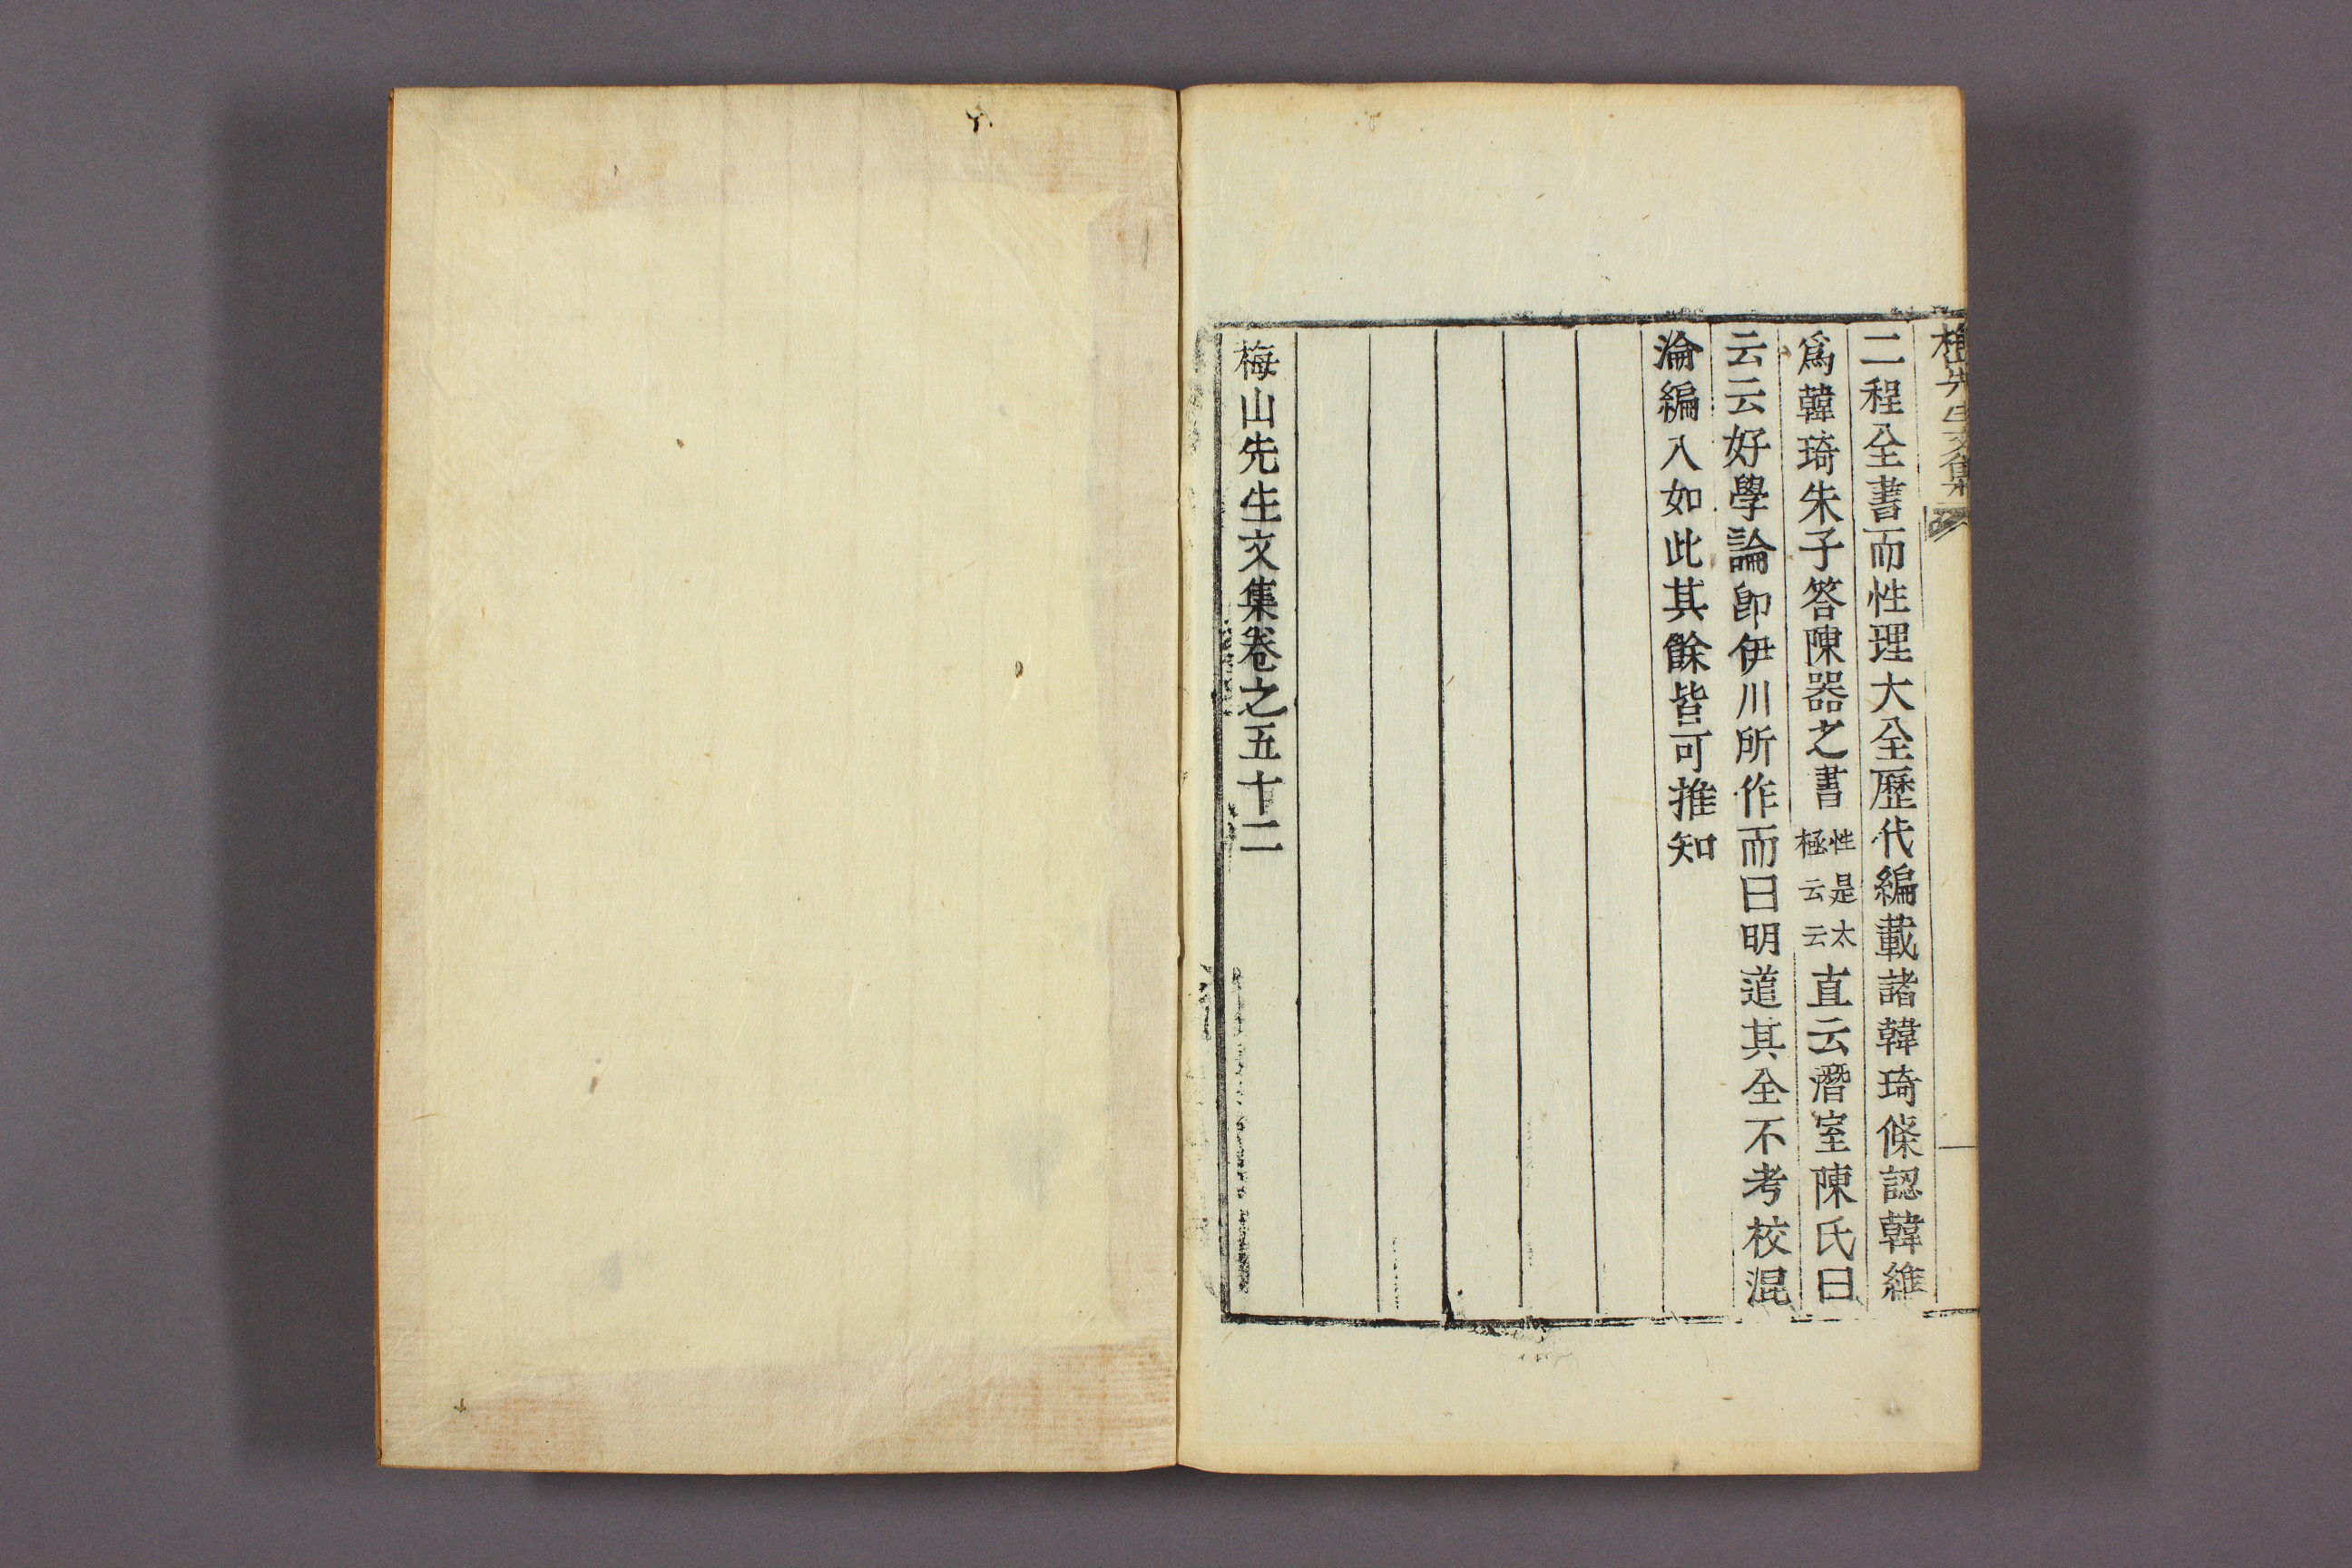 梅山先生文集
二程全書而性理大全歷代編載諸韓琦條認韓維
爲韓琦朱子答陳器之書性是太極云云直云潛室陳氏曰
云云好學論卽伊川所作而曰明道其全不考校混
淪編入如此其餘皆可推知
梅山先生文集卷之五十二